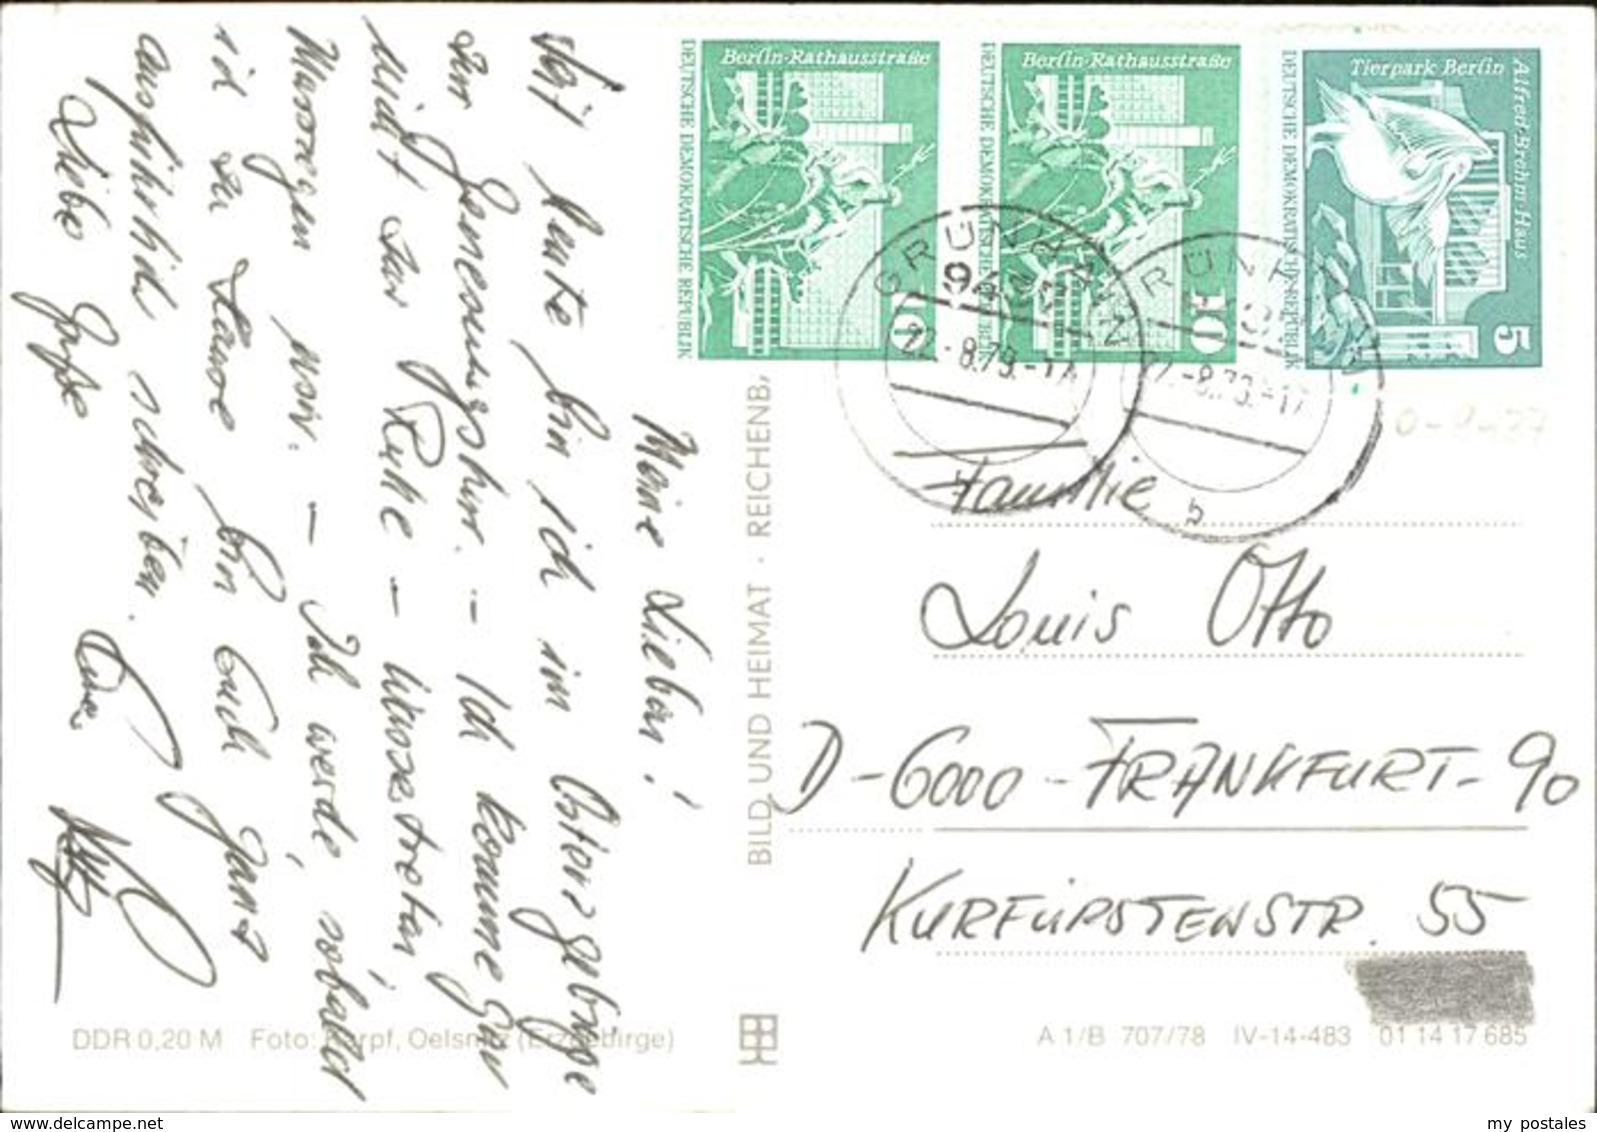 Berlin-Rathausstraße
DEUTSCHE DEMOKRATISCHE REPUBLIK
10
Berlin-Rathausstraße
DEUTSCHE DEMOKRATISCHE REPUBLIK
10
Tierpark Berlin
Alfred-Brehm-Haus
DEUTSCHE DEMOKRATISCHE REPUBLIK
5
GRÜNHAIN
22.-8.79.-17
GRÜNHAIN
22.-8.79.-17
b
Meine Lieben!
Seit heute bin ich im Osterzgebirge
zur Genesungskur. - Ich komme gar
nicht zur Ruhe - Wassertreten
Massagen usw. - Ich werde, sobald
ich zu Hause bin Euch ganz
ausführlich schreiben.
Liebe Grüße
BILD UND HEIMAT · REICHENB.
Familie
Louis Otto
D-6000-FRANKFURT-90
KURFÜRSTENSTR. 55
DDR 0,20 M Foto: Oelsnitz (Erzgebirge)
A 1/B 707/78 IV-14-483 01 14 17 685
my postales